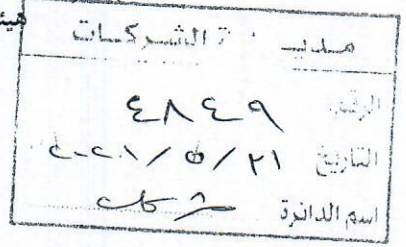 هيئ
مديرية الشركات
الرقم ٤٨٤٩
التاريخ ٢٠٢١/٥/٢١
اسم الدائرة